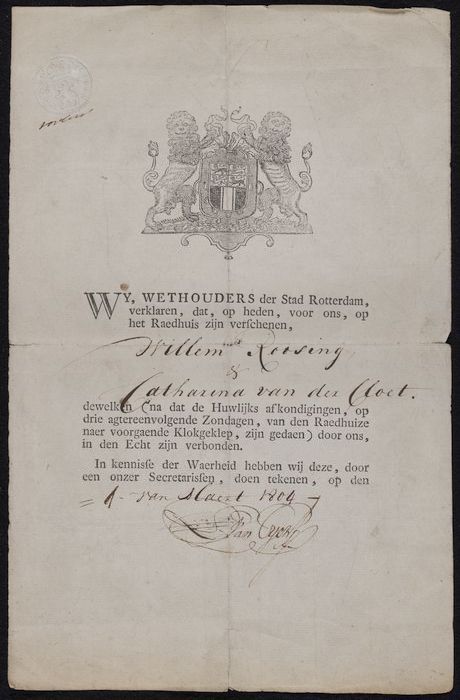 WY, WETHOUDERS der Stad Rotterdam,
verklaren, dat, op heden, voor ons, op
het Raedhuis zijn verschenen,
Willem Roosing
&
Catharina van der Cloet.
dewelken (na dat de Huwlijks afkondigingen, op
drie agtereenvolgende Zondagen, van den Raedhuize
naer voorgaende Klokgeklep, zijn gedaen) door ons,
in den Echt zijn verbonden.
In kennisse der Waerheid hebben wij deze, door
een onzer Secretarissen, doen tekenen, op den
van Maert 1804